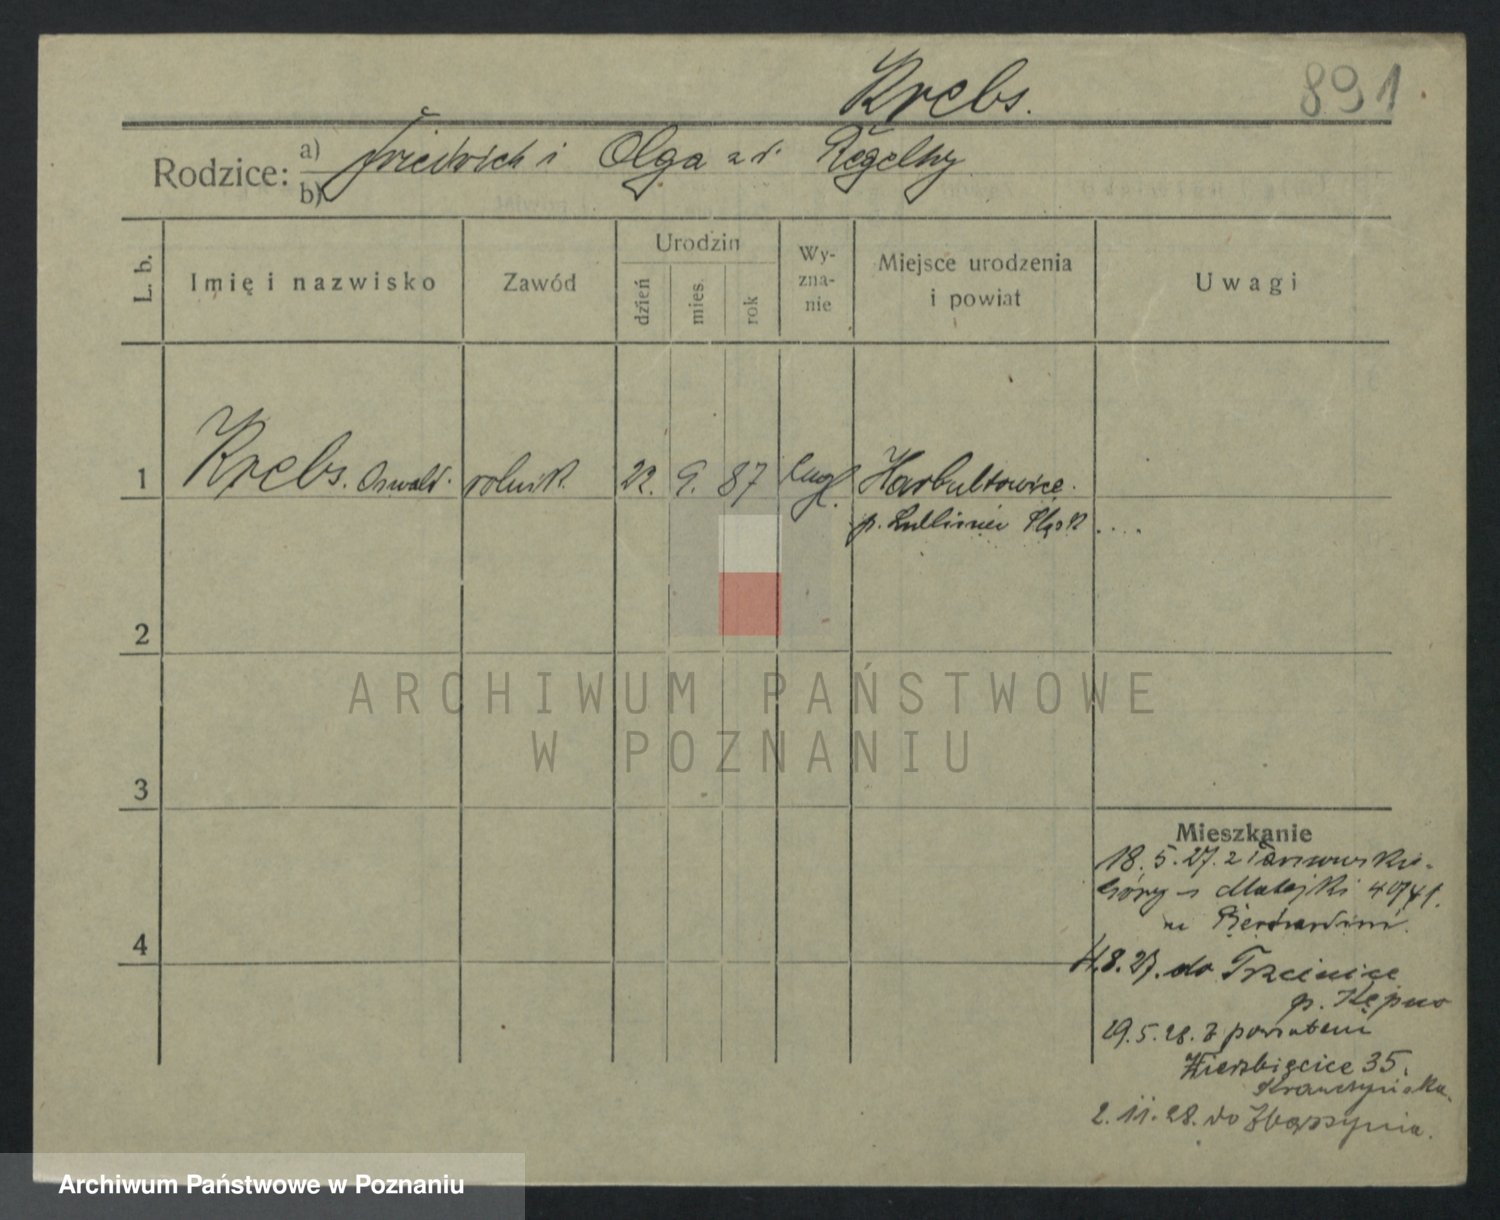 Krebs.
891
Rodzice: a) Friedrich i Olga z d. Regelky
b)
L. b.
Imię i nazwisko
Zawód
Urodzin
dzień
mies.
rok
Wy-
zna-
nie
Miejsce urodzenia
i powiat
Uwagi
1 Krebs. Oswald. rolnik 22. 9. 87 Harbultowice.
p. Lubliniec Śląsk ....
2
3
4
Mieszkanie
18. 5. 27. z Tarnowskie-
Góry - Matejki 40/41.
u Bernardini.
4.8.27. do Trzcinice
p. Kępno
29.5.28. z powrotem
Wierzbięcice 35.
2. 11. 28. do Zbąszynia.
ARCHIWUM PAŃSTWOWE
W POZNANIU
Archiwum Państwowe w Poznaniu